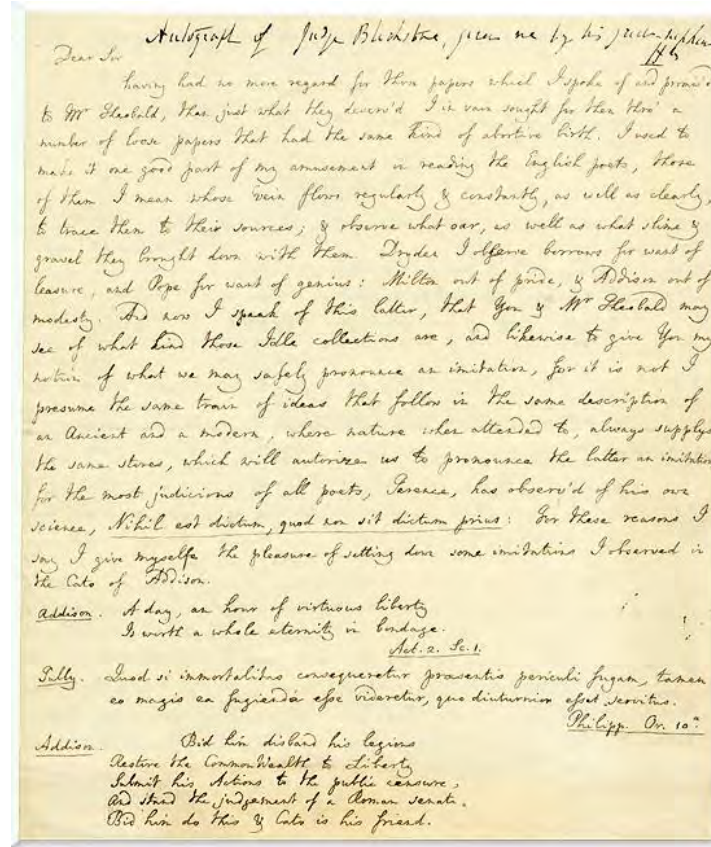 Autograph of Judge Blackstone, given me by his
Dear Sir
having had no more regard for those papers which I spoke of and promis'd
to Mr Theobald, than just what they deserv'd I in vain sought for them thro' a
number of loose papers that had the same kind of abortive birth. I used to
make it one good part of my amusement in reading the English poets, those
of them I mean whose vein flows regularly & constantly, as well as clearly,
to trace them to their sources; & observe what oar, as well as what slime &
gravel they brought down with them. Dryden I observe borrows for want of
leasure, and Pope for want of genius: Milton out of pride, & Addison out of
modesty. And now I speak of this latter, that You & Mr Theobald may
see of what kind those Idle collections are, and likewise to give You my
notion of what we may safely pronounce an imitation, for it is not I
presume the same train of ideas that follow in the same description of
an Ancient and a modern, where nature when attended to, always supplys
the same stores, which will autorize us to pronounce the latter an imitation
for the most judicious of all poets, Terence, has observ'd of his own
science, Nihil est dictum, quod non sit dictum prius: For these reasons I
say I give myselfe the pleasure of setting down some imitations I observed in
the Cato of Addison.
Addison. A day, an hour of virtuous liberty
Is worth a whole eternity in bondage.
Act. 2. Sc. 1.
Tully. Quod si immortalitas consequeretur præsentis periculi fugam, tamen
eo magis ea fugienda esse videretur, quo diuturnior esset servitus.
Philipp. Or. 10a.
Addison. Bid him disband his legions
Restore the CommonWealth to Liberty
Submit his Actions to the public censure,
And stand the judgement of a Roman senate.
Bid him do this & Cato is his friend.